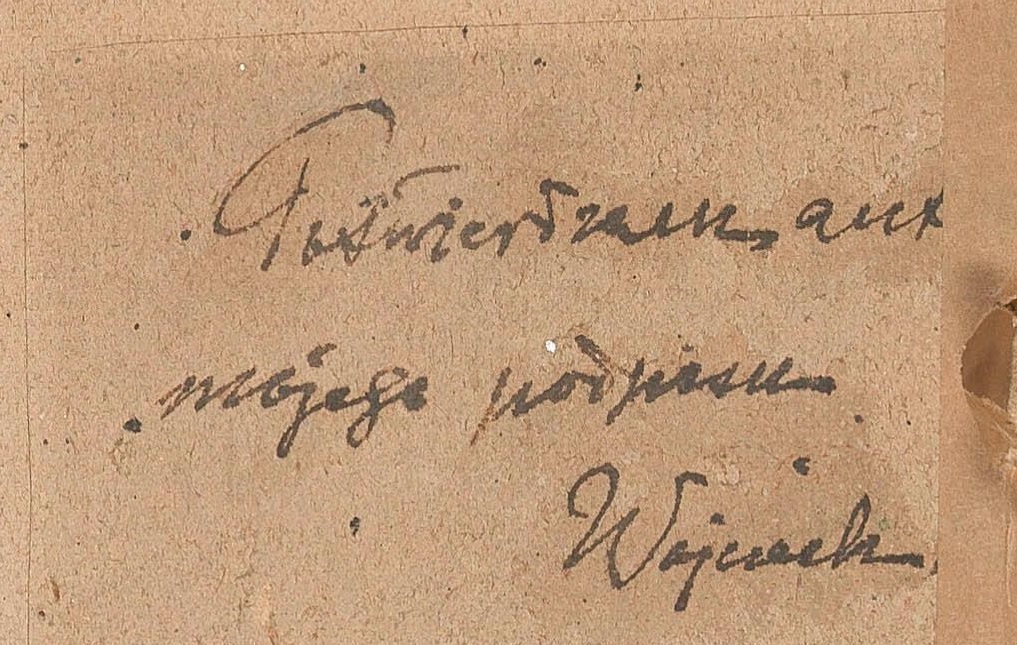 Potwierdzam aut
mojego podpisu
Wojciech